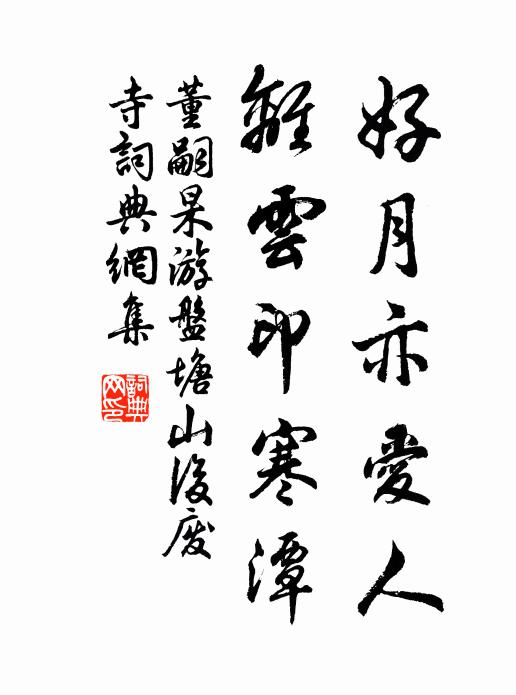 好月亦愛人
離雲印寒潭
董嗣杲游盤塘山後廢
寺詞典網集
詞典
网印